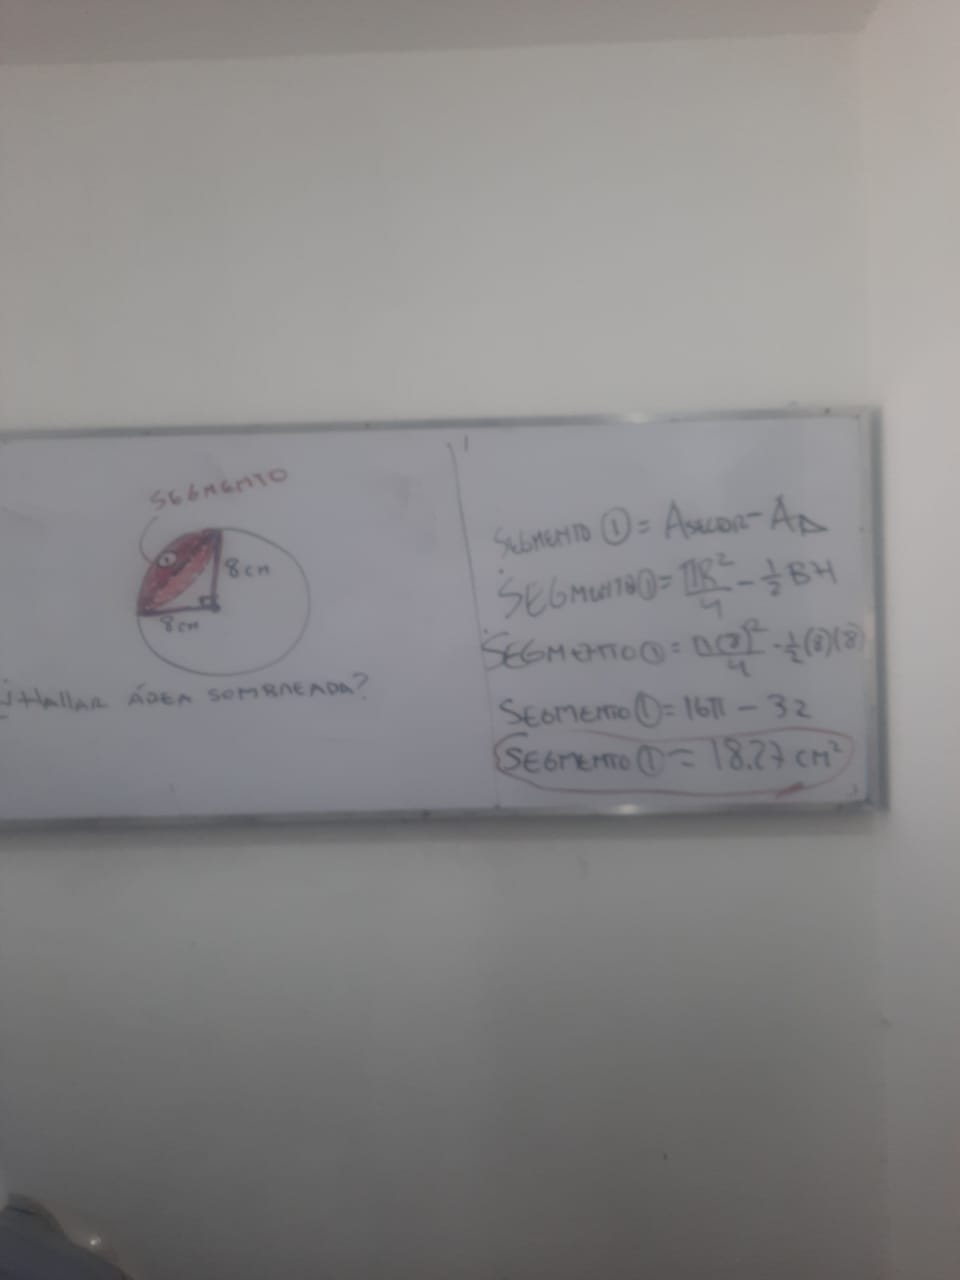 SEGMENTO
1
8cm
8cm
¿Hallar ÁREA SOMBREADA?
SEGMENTO ① = ASECTOR - A△
SEGMENTO① = πR²/4 - 1/2 BH
SEGMENTO① = π(8)²/4 - 1/2(8)(8)
SEGMENTO① = 16π - 32
SEGMENTO① = 18.27 cm²